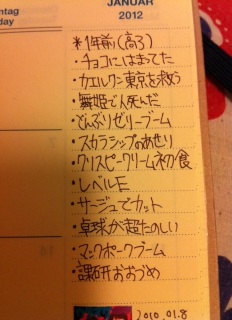 ntag
day
che
JANUAR
2012
*1年前(高3)
・チョコにはまってた
・カエルクン東京を救う
・舞姫で人死んだ
・どんぶりゼリーブーム
・スカラシップのあせり
・クリスピークリーム初食
・レベルE
・サージュでカット
・卓球が超たのしい
・マックポークブーム
・課研おおづめ
2010.01.8